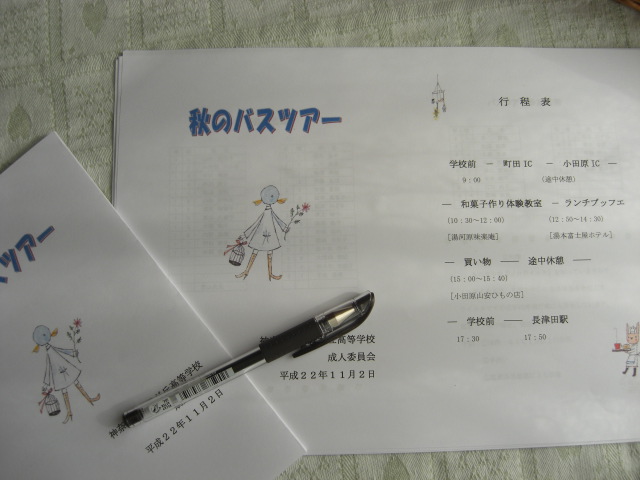 秋のバスツアー
高等学校
成人委員会
平成22年11月2日
行 程 表
学校前 － 町田IC － 小田原IC －
9：00 （途中休憩）
－ 和菓子作り体験教室 － ランチブッフェ
（10：30～12：00） （12：50～14：30）
［湯河原味楽庵］ ［湯本富士屋ホテル］
－ 買い物 ―― 途中休憩 ――
（15：00～15：40）
［小田原山安ひもの店］
－ 学校前 ―― 長津田駅
17：30 17：50
スツアー
高等学校
神奈
平成22年11月2日